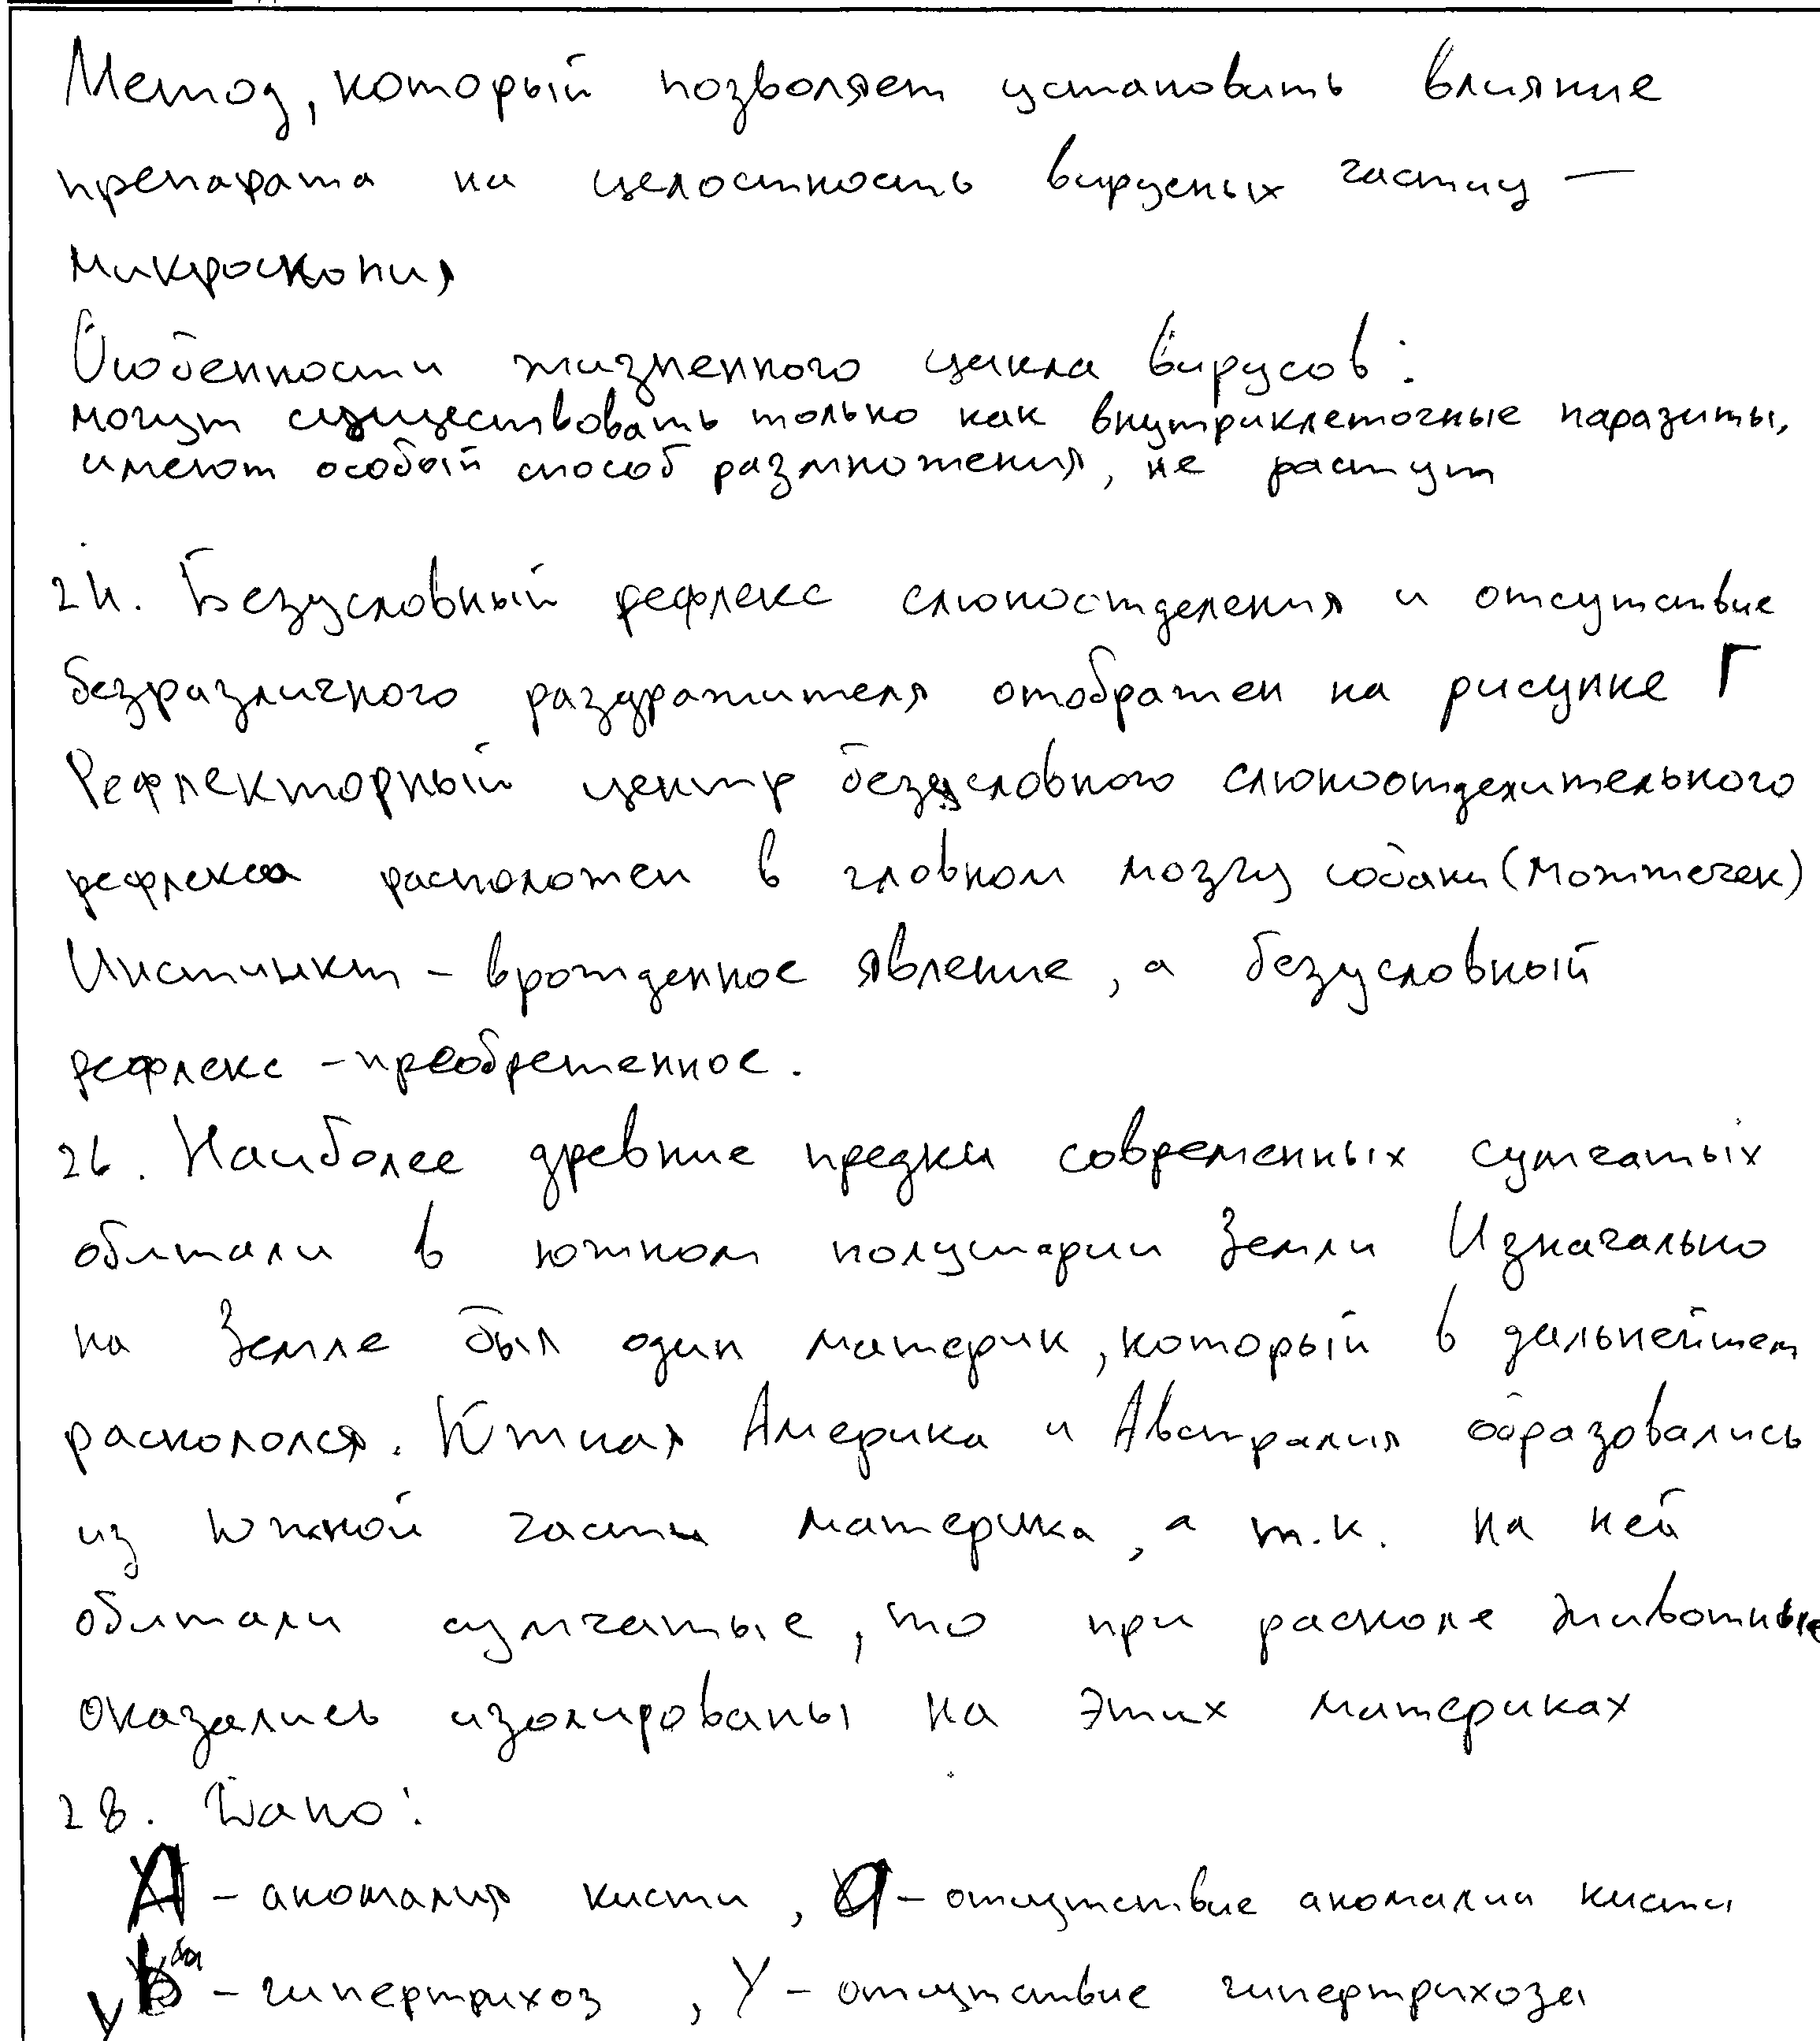 Метод, который позволяет установить влияние
препарата на целостность вирусных частиц —
микроскопия
Особенности жизненного цикла вирусов:
могут существовать только как внутриклеточные паразиты,
имеют особый способ размножения, не растут
24. Безусловный рефлекс слюноотделения и отсутствие
безразличного раздражителя отображен на рисунке Г
Рефлекторный центр безусловного слюноотделительного
рефлекса расположен в головном мозгу собаки (мозжечек)
Инстинкт - врожденное явление, а безусловный
рефлекс - преобретенное.
26. Наиболее древние предки современных сумчатых
обитали в южном полушарии Земли Изначально
на Земле был один материк, который в дальнейшем
раскололся. Южная Америка и Австралия образовались
из южной части материка, а т.к. на ней
обитали сумчатые, то при расколе животные
оказались изолированы на этих материках
28. Дано:
A - аномалия кисти, a - отсутствие аномалии кисти
- гипертрихоз, Y - отсутствие гипертрихоза